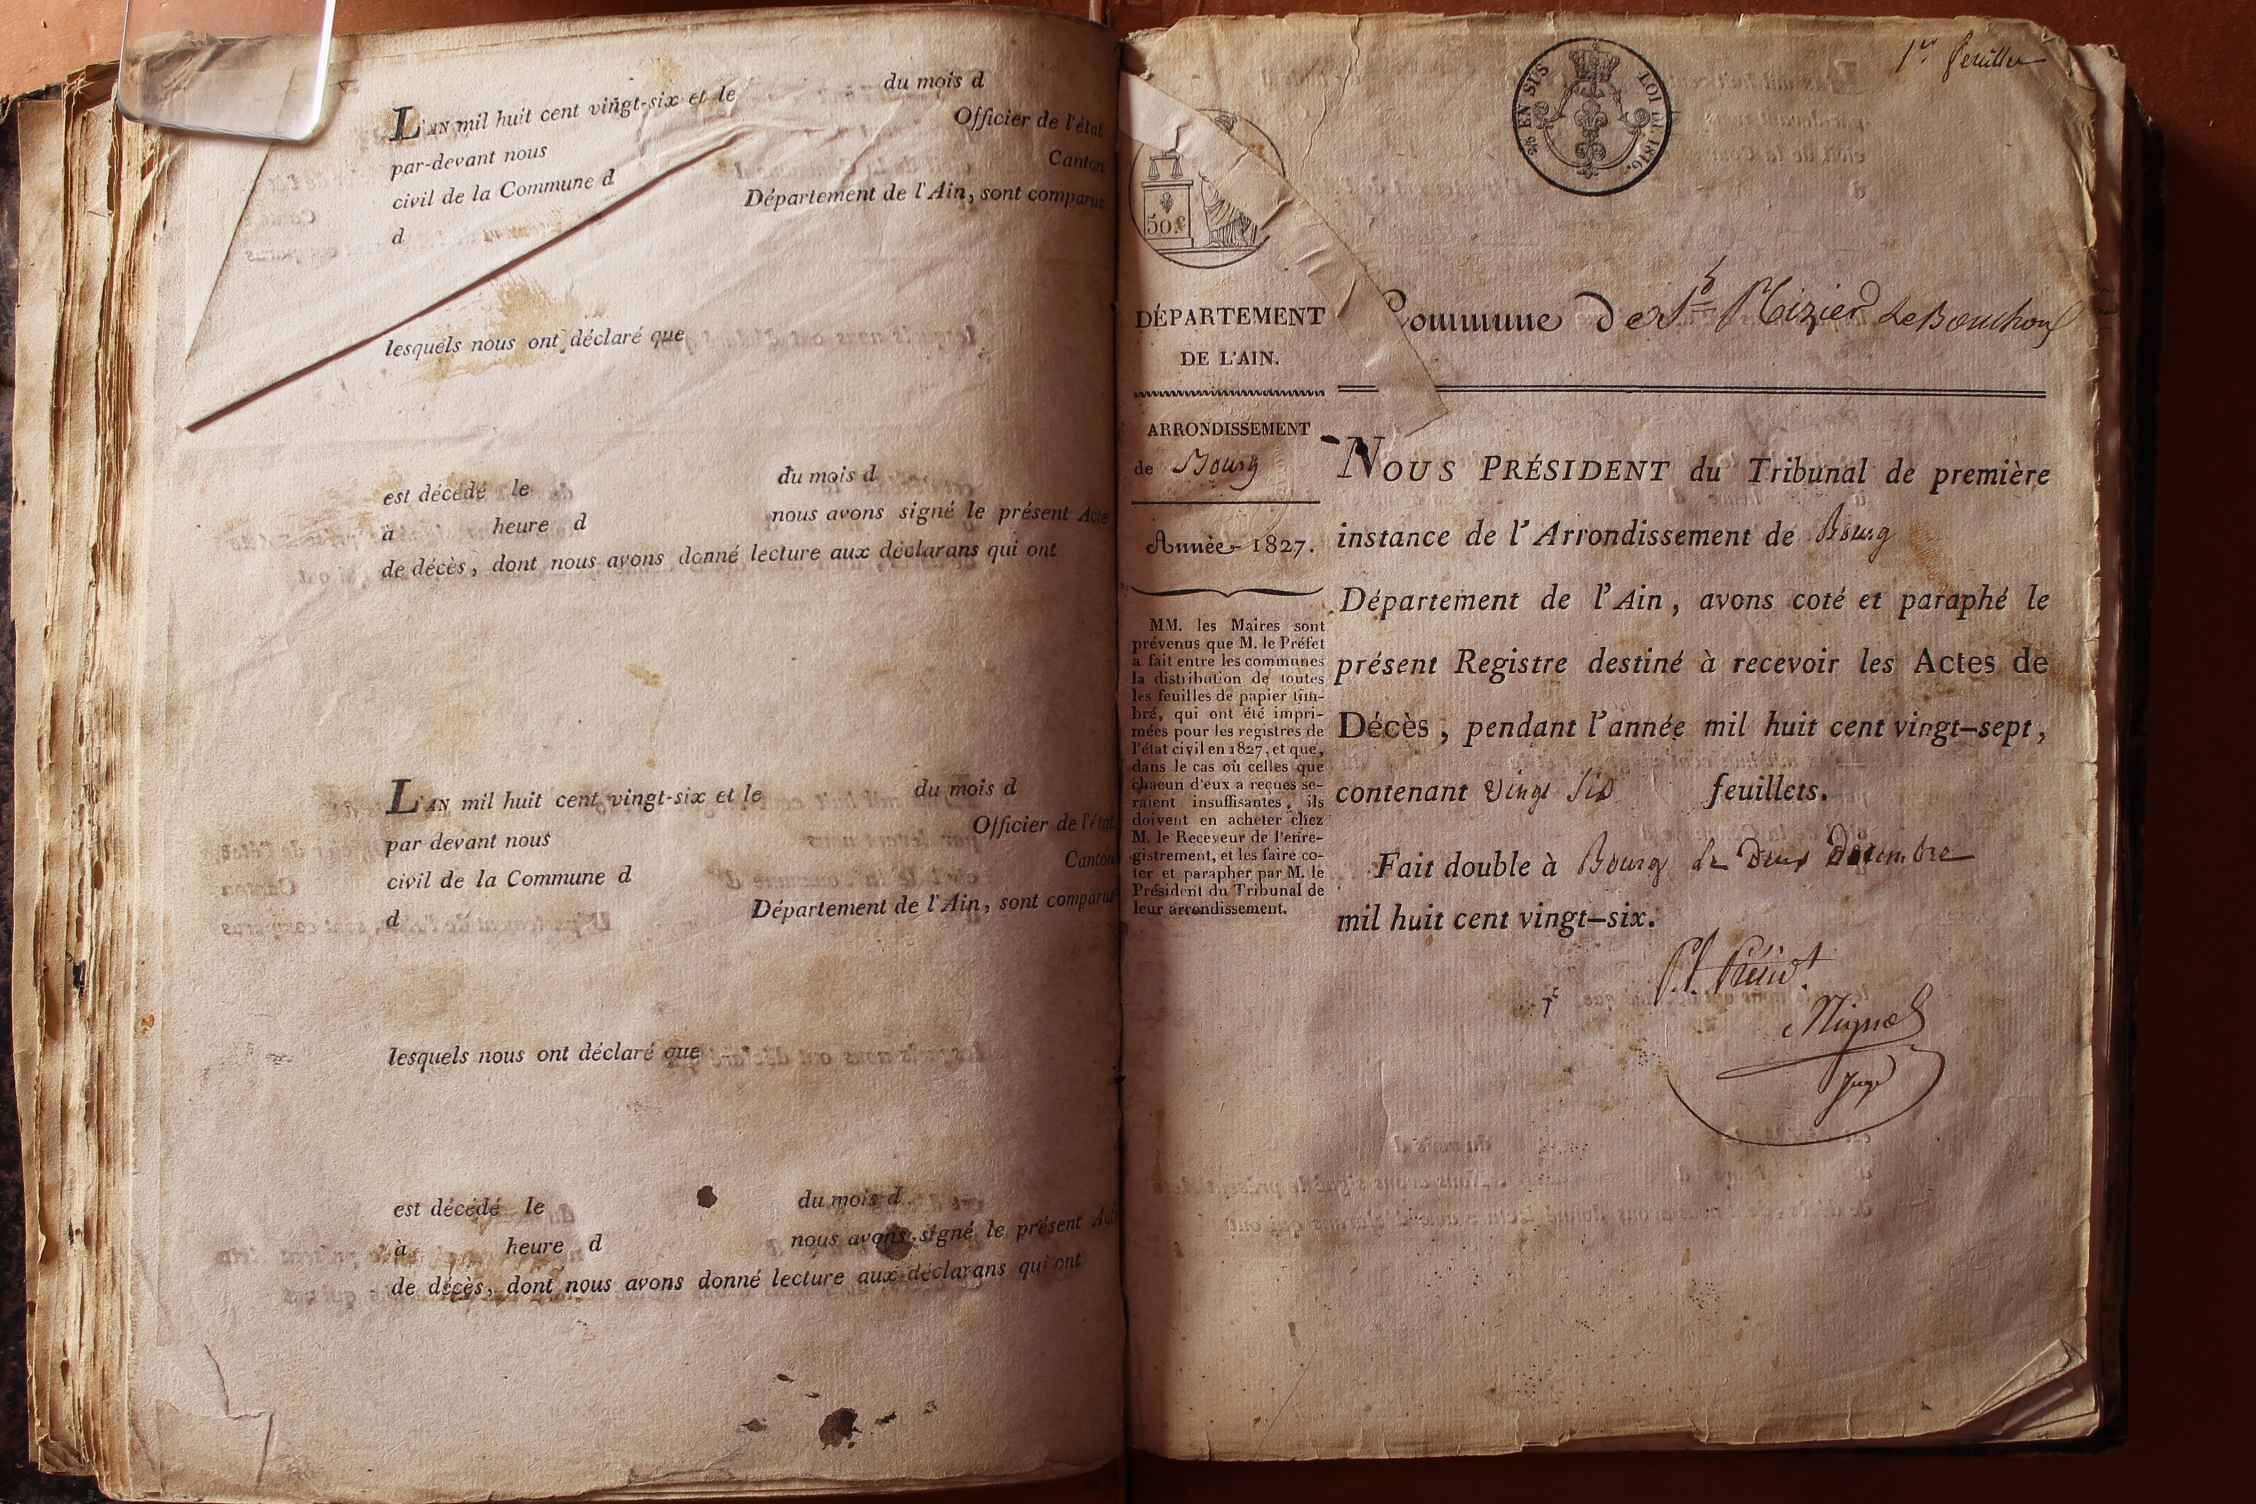 L'AN mil huit cent vingt-six et le du mois d
par-devant nous Officier de l'état
civil de la Commune d Canton
d Département de l'Ain, sont comparus
lesquels nous ont déclaré que
est décédé le du mois d
à heure d nous avons signé le présent Acte
de décès, dont nous avons donné lecture aux déclarans qui ont
L'AN mil huit cent vingt-six et le du mois d
par devant nous Officier de l'état
civil de la Commune d Canton
d Département de l'Ain, sont comparus
lesquels nous ont déclaré que
est décédé le du mois d
à heure d nous avons signé le présent
de décès, dont nous avons donné lecture aux déclarans qui ont
1er feuillet
EN SUS LOI DE 1816.
50 c
DÉPARTEMENT
DE L'AIN.
ARRONDISSEMENT
de Bourg
Année 1827.
MM. les Maires sont
prévenus que M. le Préfet
a fait entre les communes
la distribution de toutes
les feuilles de papier tim-
bré, qui ont été impri-
mées pour les registres de
l'état civil en 1827, et que,
dans le cas où celles que
chacun d'eux a reçues se-
raient insuffisantes, ils
doivent en acheter chez
M. le Receveur de l'enre-
gistrement, et les faire co-
ter et parapher par M. le
Président du Tribunal de
leur arrondissement.
Commune De St Nizier Le Bouchoux
NOUS PRÉSIDENT du Tribunal de première
instance de l'Arrondissement de Bourg
Département de l'Ain, avons coté et paraphé le
présent Registre destiné à recevoir les Actes de
Décès, pendant l'année mil huit cent vingt-sept,
contenant vingt six feuillets.
Fait double à Bourg le deux décembre
mil huit cent vingt-six.
Juge